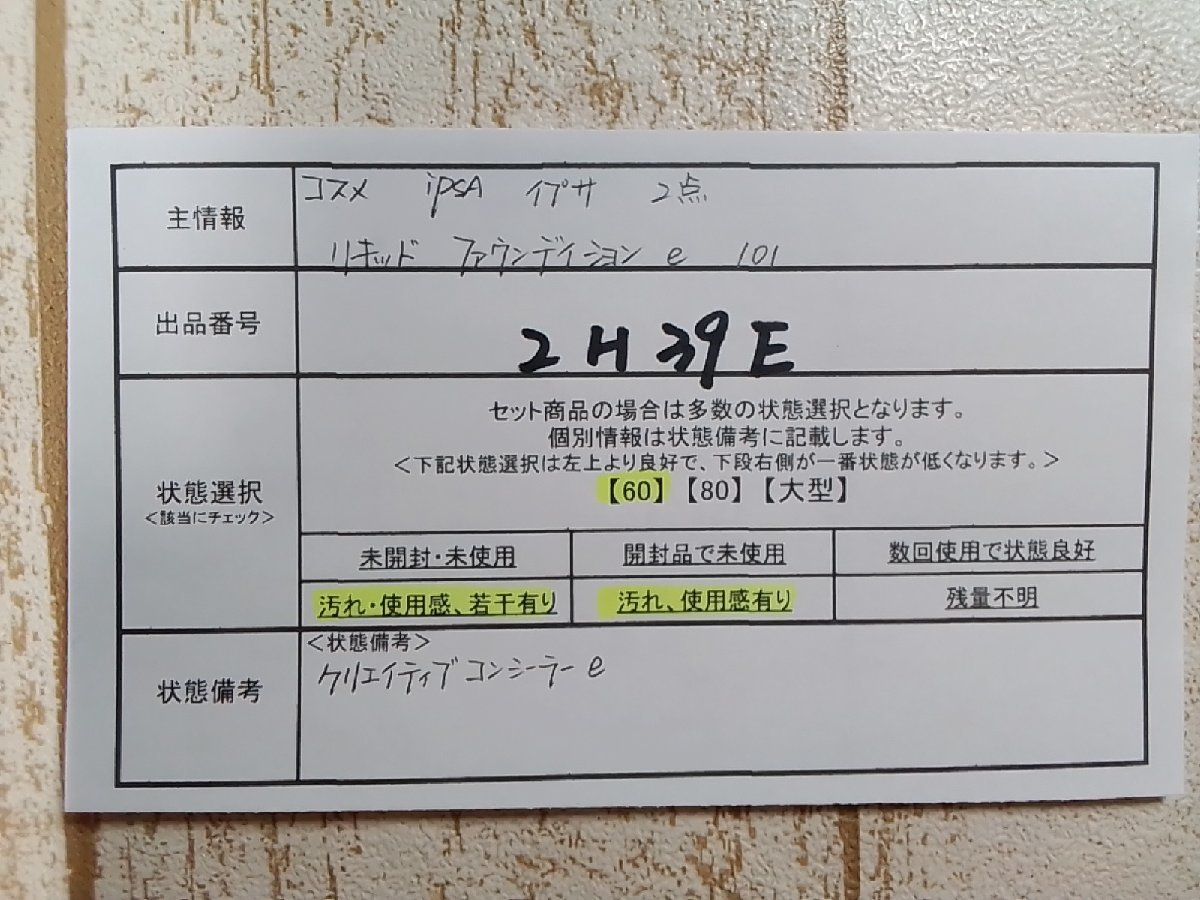 主情報
コスメ ipSA イプサ 2点
リキッド ファウンデイション e 101
出品番号
2H39E
状態選択
<該当にチェック>
セット商品の場合は多数の状態選択となります。
個別情報は状態備考に記載します。
<下記状態選択は左上より良好で、下段右側が一番状態が低くなります。>
【60】【80】【大型】
未開封・未使用 開封品で未使用 数回使用で状態良好
汚れ・使用感、若干有り 汚れ、使用感有り 残量不明
状態備考
<状態備考>
クリエイティブコンシーラー e